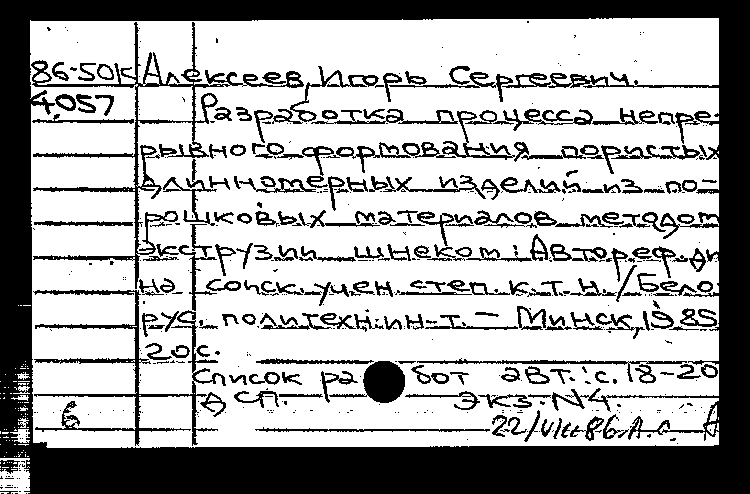 86-50к Алексеев, Игорь Сергеевич.
4057 Разработка процесса непре-
рывного формования пористых
длинномерных изделий из по-
рошковых материалов методом
экструзии шнеком: Автореф. ди
на соиск. учен. степ. к. т. н. / Бело-
рус. политехн. ин-т. - Минск, 1985
20 с.
Список ра бот авт.: с. 18-20
ДСП. Экз. N4.
6
22/VIII 86. А. с.